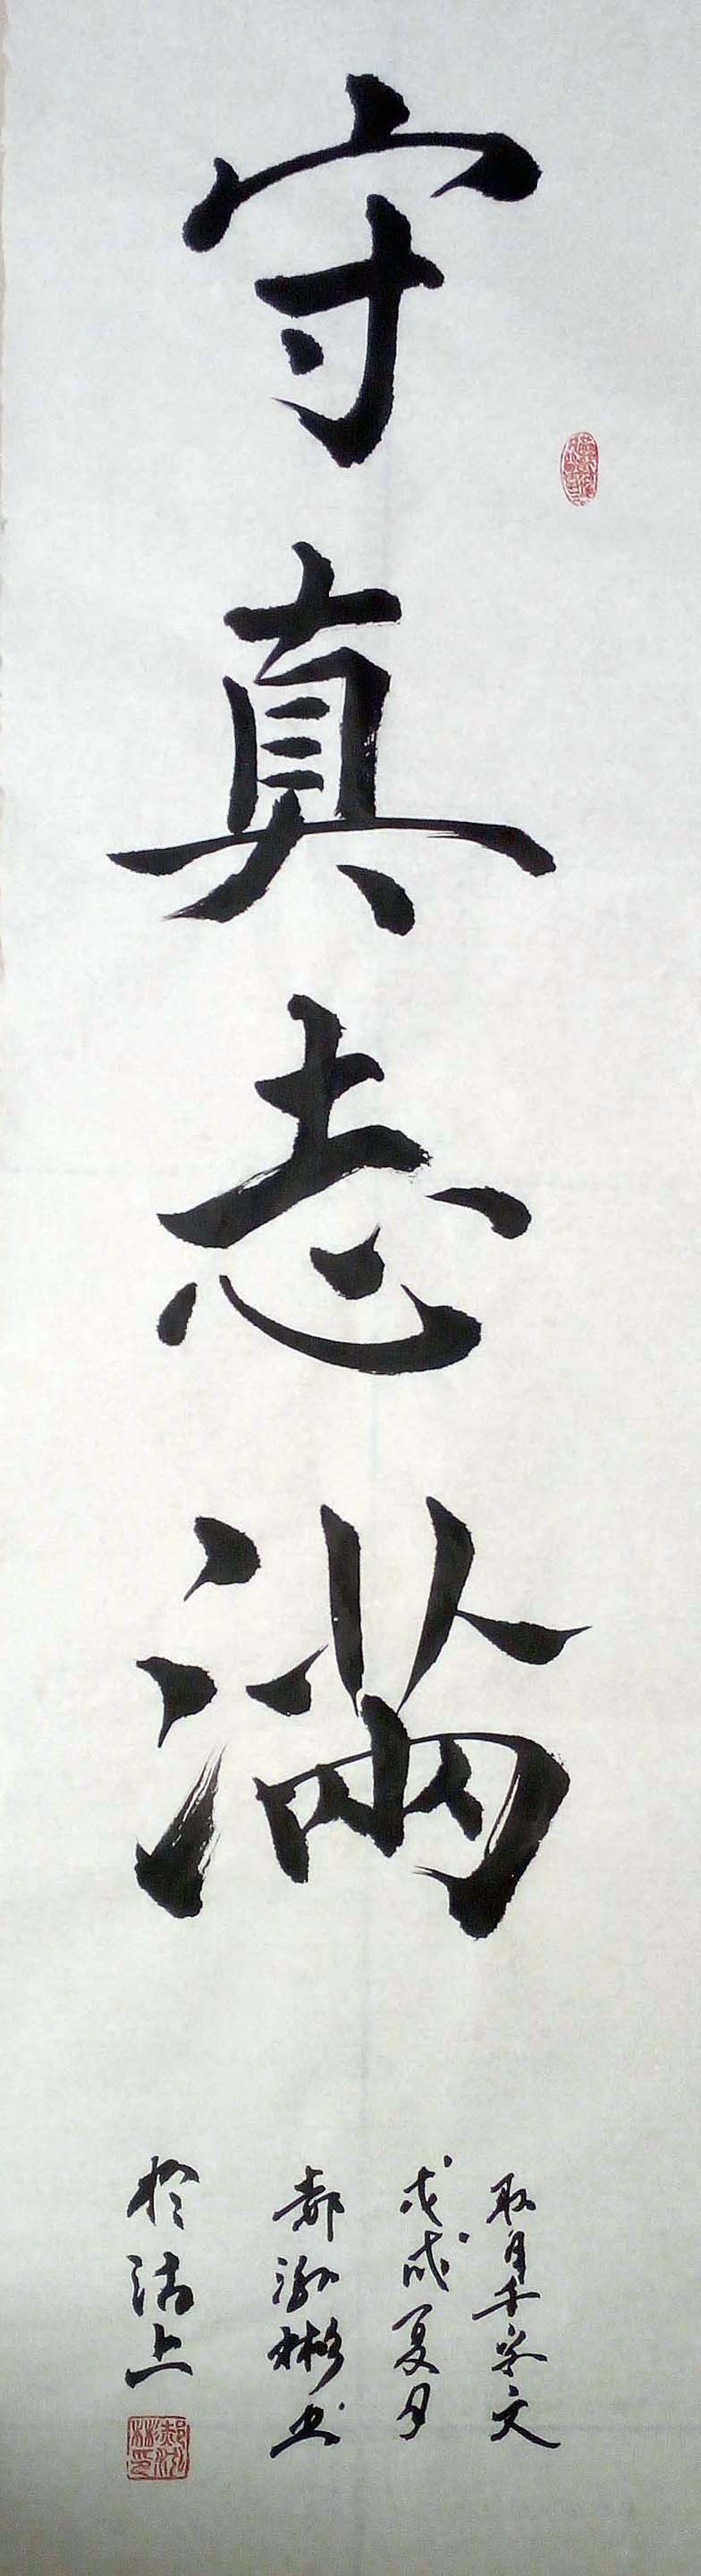 守真志满
取自千字文
戊戌夏月
郝泓彬书
於沽上